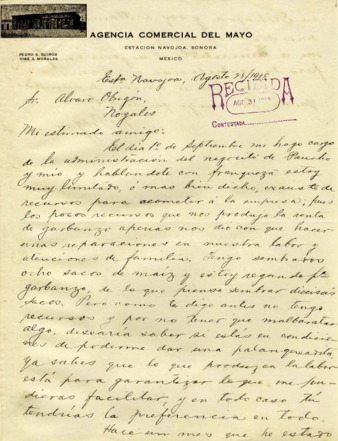 AGENCIA COMERCIAL DEL MAYO
ESTACION NAVOJOA, SONORA
MEXICO
PEDRO S. QUIROS
JOSE A. MORALES
Estn Navojoa, Agosto 28/1915
RECIBIDA
AGO. 31
CONTESTADA
Sr. Alvaro Obregón,
Nogales
Mi estimado amigo:
El dia 1º de Septiembre me hago cargo
de la administracion del negocito de Pancho
y mio y hablandote con franqueza estoy
muy limitado, ó mas bien dicho, exausto de
recursos para acometer á la empresa; pues
los pocos recursos que nos produjo la venta
de garbanzo apenas nos dio con que hacer
unas reparaciones en nuestra labor y
atenciones de familia. Tengo sembrados
ocho sacos de maiz y estoy regando pa
garbanzo, de lo que pienso sembrar dieciseis
sacos. Pero como te digo antes no tengo
recursos y por no tener que malbaratar
algo, desearia saber si estás en condicio-
nes de poderme dar una palangueadita,
ya sabes que lo que produzca la labor
está para garantizar lo que me pu-
dieras facilitar, y en todo caso tu
tendrias la preferencia en todo.
Hace un mes que he estado